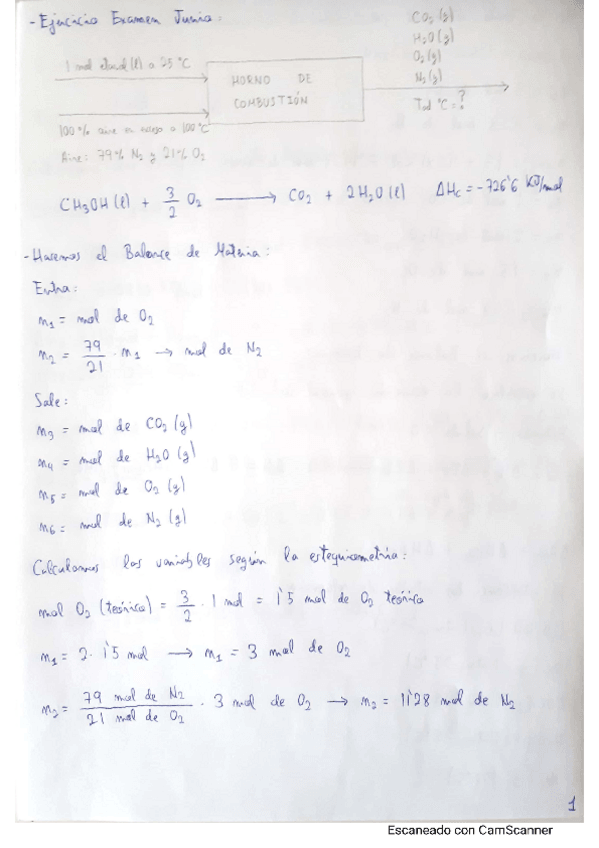 - Ejercicio Examen Junio:
CO2 (g)
H2O (g)
O2 (g)
N2 (g)
Tad °C = ?
1 mol etanol (l) a 25 °C
HORNO DE
COMBUSTIÓN
100% aire en exceso a 100°C
Aire: 79% N2 y 21% O2
CH3OH (l) + 3/2 O2 ⟶ CO2 + 2H2O (l) ΔHc = -726'6 KJ/mol
- Hacemos el Balance de Materia:
Entra:
m1 = mol de O2
m2 = 79/21 · m1 → mol de N2
Sale:
m3 = mol de CO2 (g)
m4 = mol de H2O (g)
m5 = mol de O2 (g)
m6 = mol de N2 (g)
Calculamos las variables según la estequiometría:
mol O2 (teórico) = 3/2 · 1 mol = 1'5 mol de O2 teórico
m1 = 2 · 1'5 mol → m1 = 3 mol de O2
m2 = 79 mol de N2 / 21 mol de O2 · 3 mol de O2 → m2 = 11'28 mol de N2
1
Escaneado con CamScanner